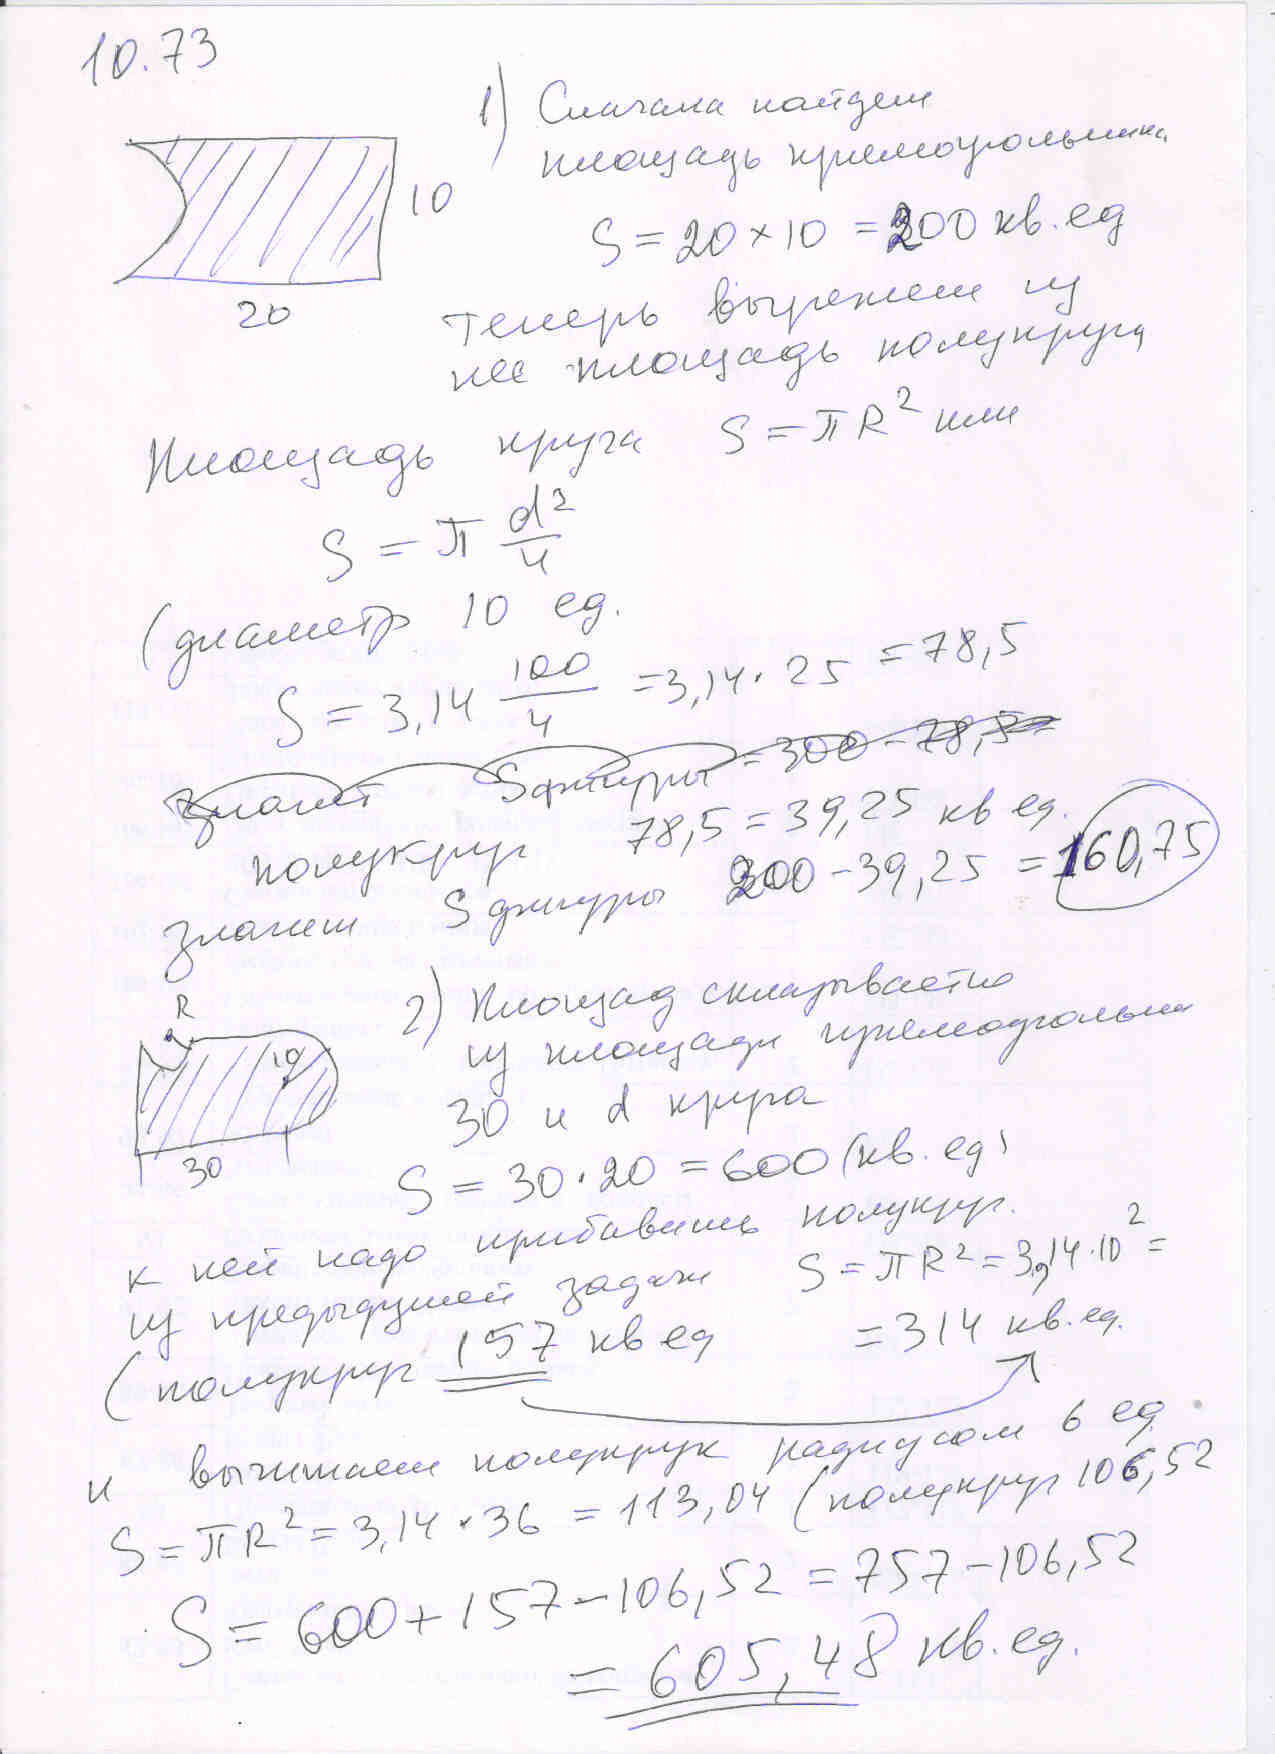 10.73
1) Сначала найдем
площадь прямоугольника
10
S = 20 × 10 = 200 кв. ед
20
теперь вырежем из
нее площадь полукруга
Площадь круга S = πR² или
S = π d²/4
(диаметр 10 ед.
S = 3,14 100/4 = 3,14 · 25 = 78,5
Значит Sфигуры = 300 - 78,5 =
полукруг 78,5 = 39,25 кв ед.
значит S фигуры 200 - 39,25 = 160,75
R
2) Площад складывается
из площади прямоугольни
10
30 и d круга
30
S = 30 · 20 = 600 (кв. ед)
к ней надо прибавить полукруг.
из предыдущей задачи S = πR² = 3,14 · 10² =
(полукруг 157 кв ед = 314 кв. ед.
и вычитаем полукрук радиусом 6 ед.
S = πR² = 3,14 · 36 = 113,04 (полукруг 106,52
S = 600 + 157 - 106,52 = 757 - 106,52
= 605,48 кв. ед.